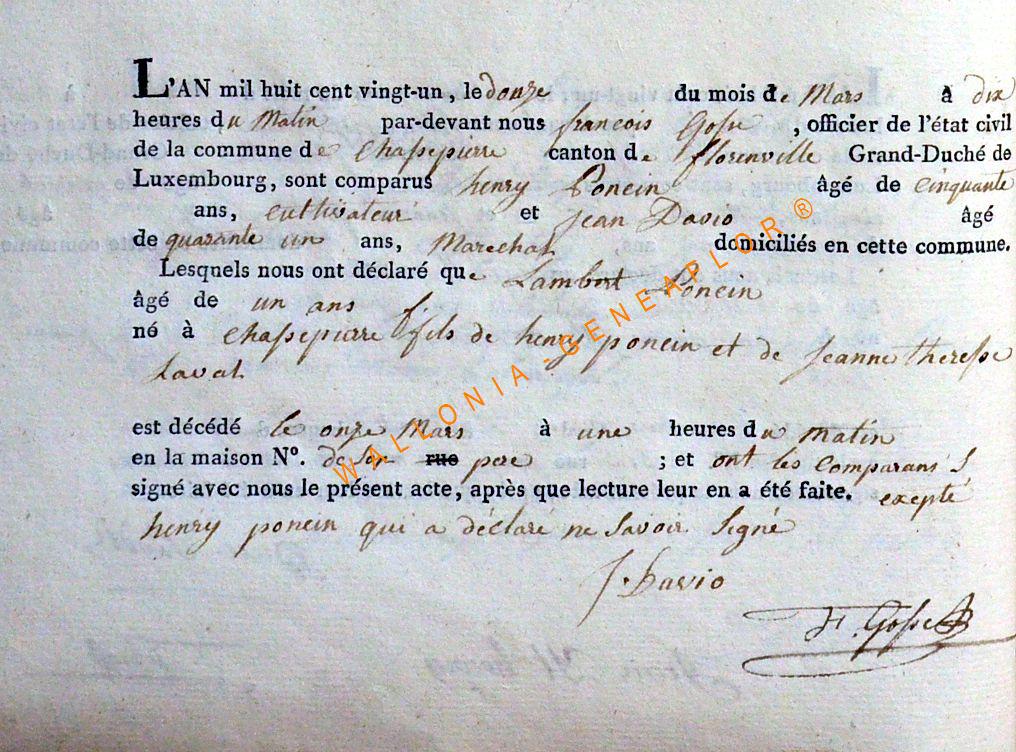 L'AN mil huit cent vingt-un, le douze du mois de Mars à dix
heures du Matin par-devant nous francois Gosse, officier de l'état civil
de la commune de Chassepierre canton de florenville Grand-Duché de
Luxembourg, sont comparus henry Poncin âgé de cinquante
ans, cultivateur et jean Davio âgé
de quarante un ans, Marechal domiciliés en cette commune.
Lesquels nous ont déclaré que Lambert Poncin
âgé de un ans fils de henry poncin et de Jeanne theresse
né à chassepierre
Laval
est décédé le onze Mars à une heures du matin
en la maison N°. de son rue pere ; et ont les Comparans
signé avec nous le présent acte, après que lecture leur en a été faite. excepté
henry poncin qui a déclaré ne Savoir Signé
J. Davio
F. Gosse
WALLONIA - GENEAPLOR ®